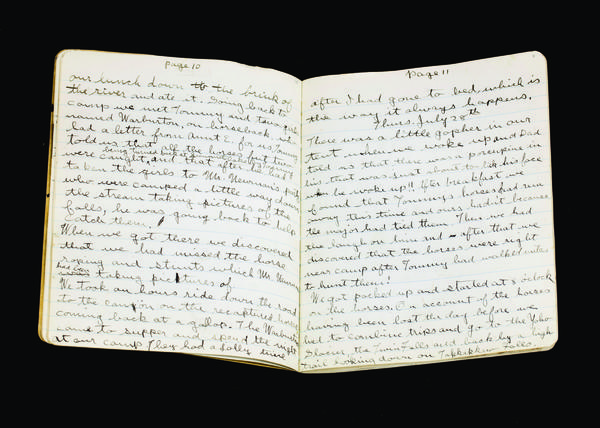 page 10
our lunch down to the brink of
the river and ate it. Going back to
camp we met Tommy and two girls
named Warburton, on horseback who
had a letter from Aunt E. for us Tommy
told us that all the horses but two
were caught, and that after he had
taken the girls to Mr. Newman's party
who were camped a little way down
the stream taking pictures of the
falls, he was going back to help
catch them.
When we got there we discovered
that we had missed the horse
roping and stunts which Mr. Newman
had been taking pictures of
We took an hours ride down the road
to the canyon on the recaptured horses
coming back at a gallop. The Warburtons
came to supper and spend the night
at our camp. They had a jolly time
page 11
after I had gone to bed, which is
the way it always happens.
Thurs. July 20th
There was a little gopher in our
tent when we woke up and Dad
told us that there was a porcupine in
his that was just about to his face
when he woke up!! After breakfast we
found that Tommy's horses had run
away this time and ours hadn't because
the major had tied them. Then we had
the laugh on him and - after that we
discovered that the horses were right
near camp after Tommy had walked miles
to hunt them!
We got packed up and started at 8 o'clock
on the horses. On account of the horses
having been lost the day before we
had to combine trips and go to the Yoho
Glacier, the Twin Falls and back by a high
trail looking down on Takkakkaw Falls.